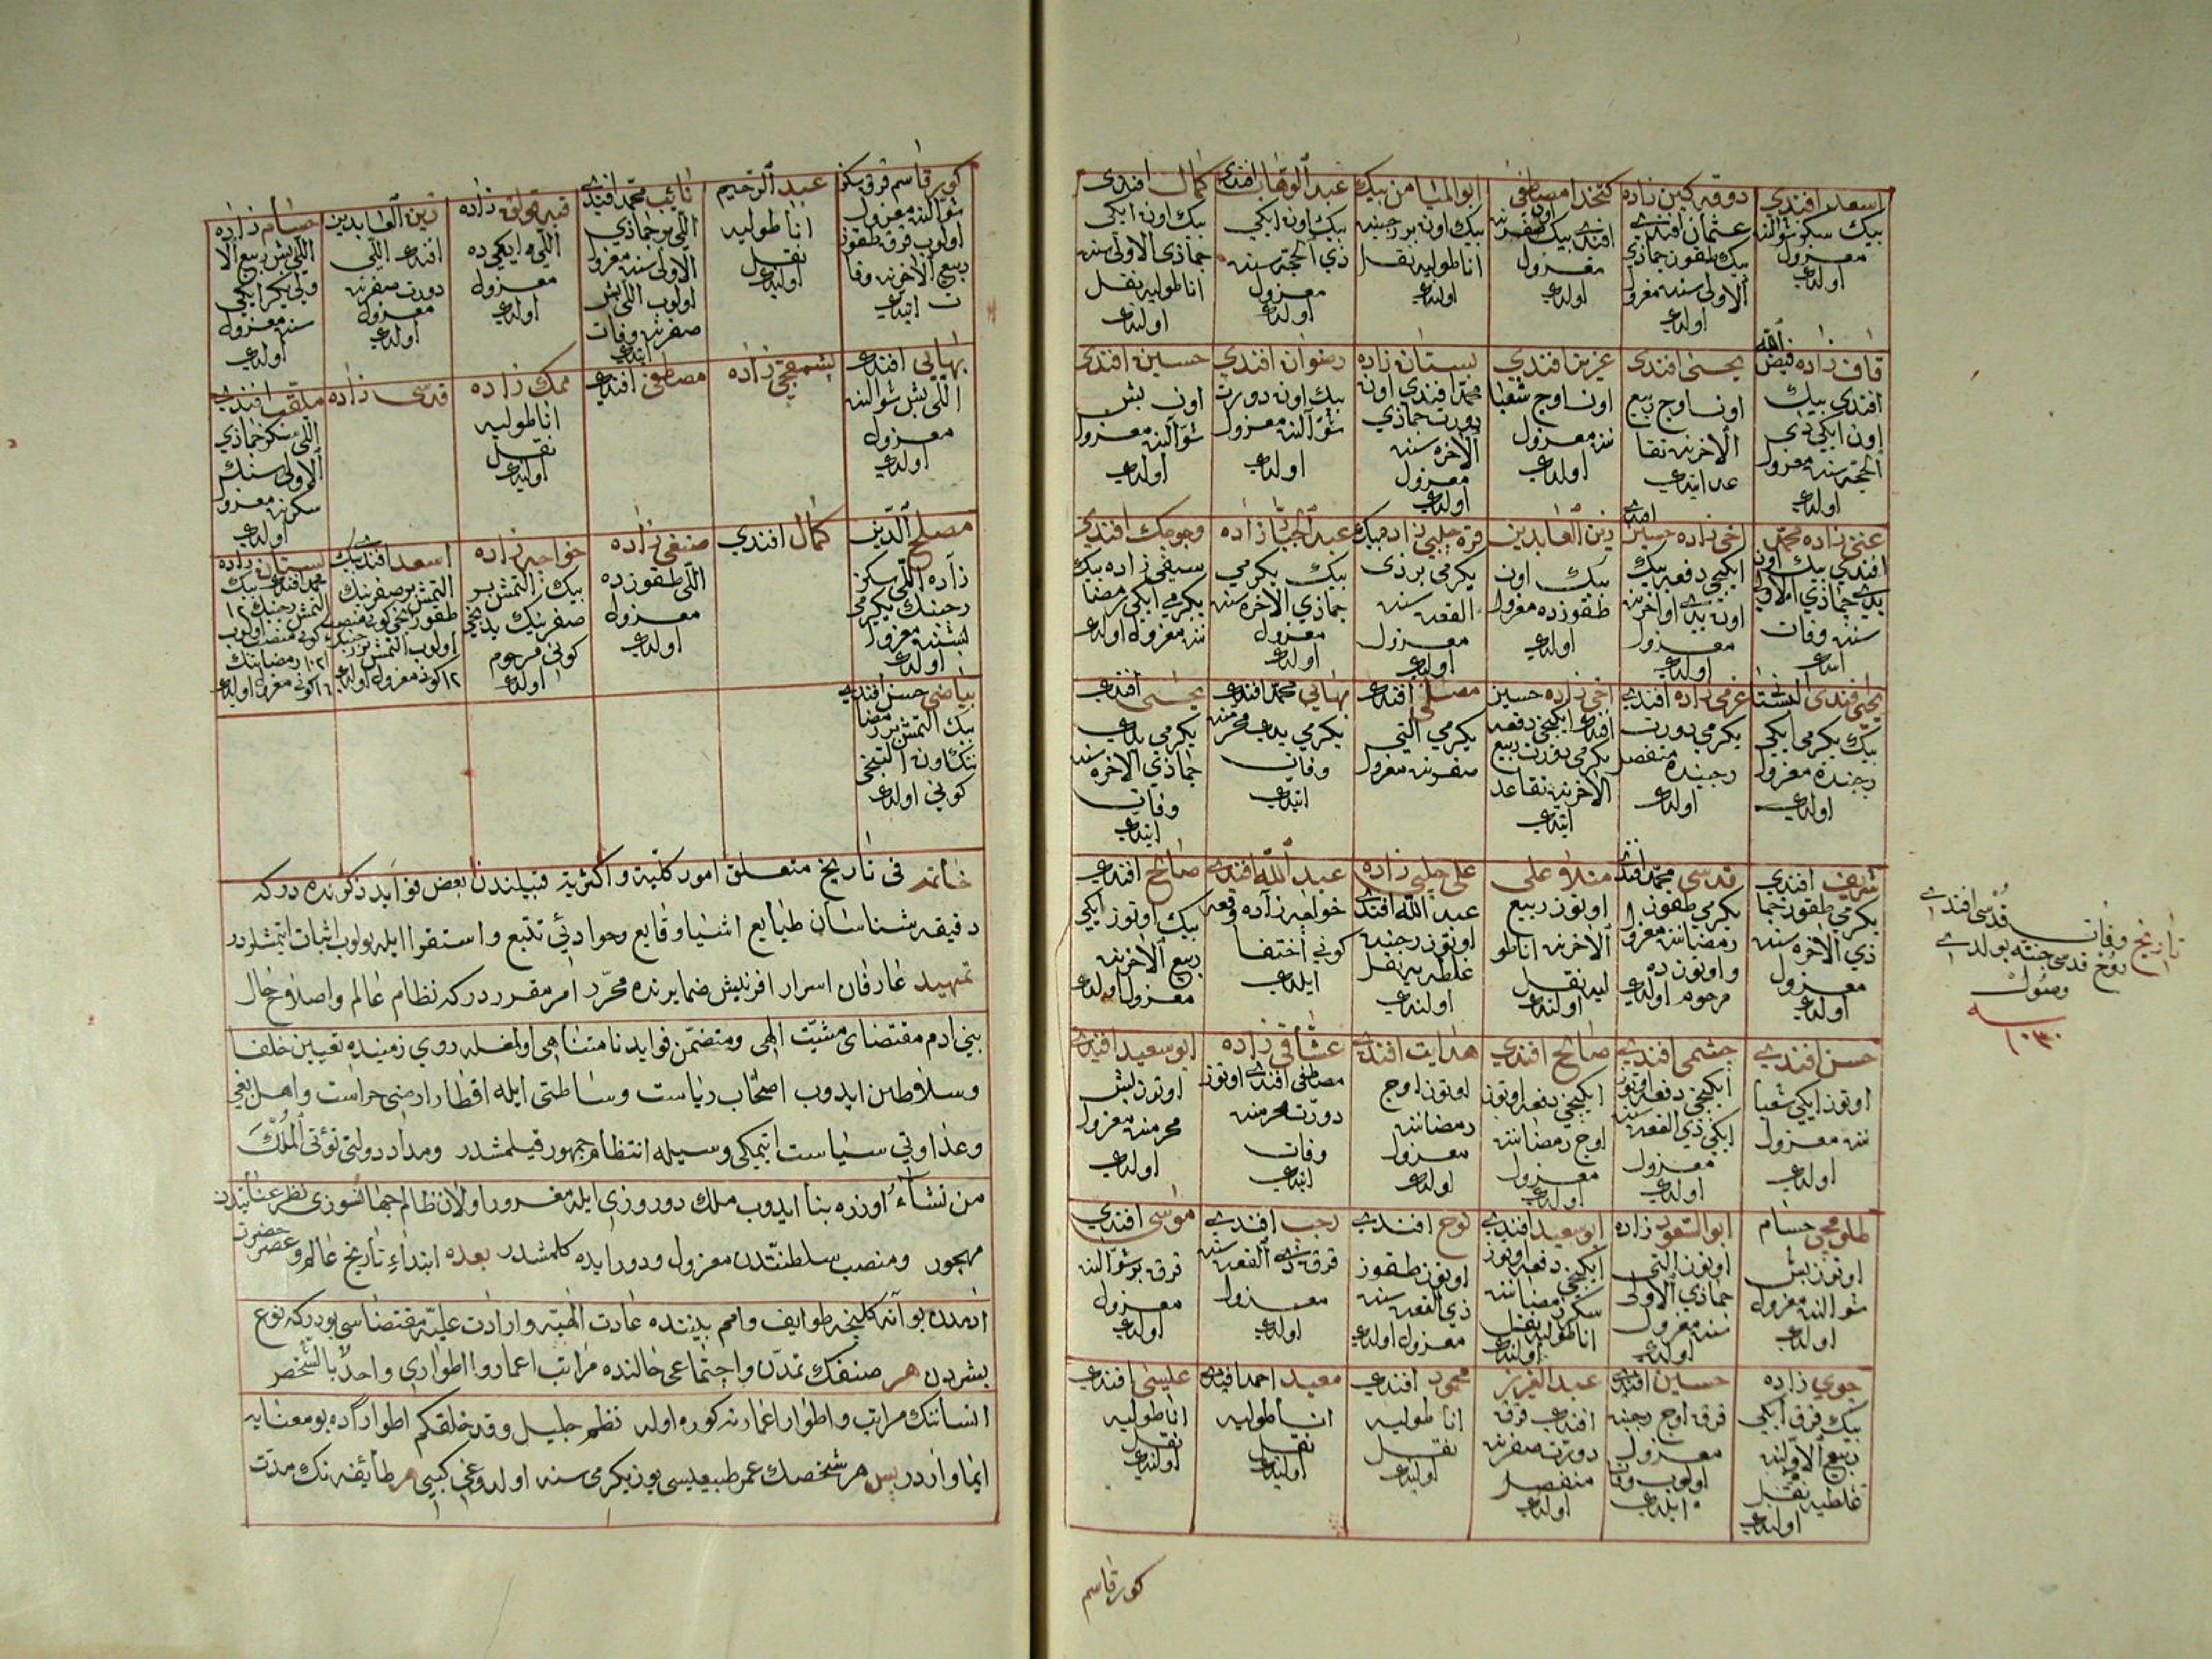 اسعد افندي
بيك سكز شوالنده
معزول
اولدى
دوقه كين زاده
عثمان افندي
بيك طقوز جماذي
الاولى سنده معزول
اولدى
كتخدا مصطفى
افندي بيك اون صفرنده
معزول
اولدى
ابو الميامن بيك
بيك اون بر رجبنده
اناطوليه نقل
اولندى
عبد الوهاب افندى
بيك اون ايكى
ذي الحجه سنده
معزول
اولدى
كمال افندى
بيك اون ايكى
جماذى الاولى سنده
اناطوليه نقل
اولندى
قاف زاده فيض الله
افندي بيك
اون ايكى ذى
الحجه سنده معزول
اولدى
يحيى افندى
اون اوج ربيع
الاخرنده تقا
عد ايتدى
عزيز افندي
اون اوج شعبا
ننده معزول
اولدى
بستان زاده
محمد افندى اون
دورت جماذي
الاخره سنده
معزول
اولدى
رضوان افندي
بيك اون دورت
شوالنده معزول
اولدى
حسين افندى
اون بش
شوالنده معزول
اولدى
غنى زاده محمد
افندي بيك اون
يدى جماذي الاولى
سنده وفات
ايتدى
اخى زاده حسين افندى
ايكنجى دفعه بيك
اون يدى اواخرنده
معزول
اولدى
زين العابدين
بيك اون
طقوزده معزول
اولدى
قره چلبي زاده بيك
يكرمى بر ذى
القعده سنده
معزول
اولدى
عبد الجبار زاده
بيك يكرمي
جماذي الاخره سنده
معزول
اولدى
وجو مك افندي
سيفى زاده بيك
يكرمى ايكى رمضا
ننده معزول اولدى
يحيى افندى
بيك يكرمى ايكى
رجبنده معزول
اولدى
عزمى زاده افندي
يكرمى دورت
رجبنده منفصل
اولدى
اخى زاده حسين
افندى ايكنجى دفعه
يكرمى دورت ربيع
الاخرنده تقاعد
ايتدى
مصلى افندى
يكرمي التي
صفرنده معزول
بهائي محمد افندى
يكرمى يدى محرمنده
وفات
ايتدى
يحيى افندى
يكرمى يدى
جماذي الاخره سنده
وفات
ايتدى
شريف افندي
يكرمي طقوز جما
ذي الاخره سنده
معزول
اولدى
قدسي محمد افندى
يكرمي طقوز
رمضاننده معزول
و اوتوزده
مرحوم اولدى
منلا على
اوتوز ربيع
الاخرنده اناطو
ليه نقل
اولندى
على چلبى زاده
عبد الله افندى
اوتوز رجبنده
غلطه يه نقل
اولندى
عبد الله افندى
خواجه زاده وقعه
كوني اختفا
ايلدى
صالح افندى
بيك اوتوز ايكى
ربيع الاخرنده
معزول اولدى
حسن افندي
اوتوز ايكى شعبا
ننده معزول
اولدى
چشمى افندي
ايكنجى دفعه اوتوز
ايكى ذي القعده سنده
معزول
اولدى
صالح افندي
ايكنجى دفعه اوتوز
اوج رمضاننده
معزول
اولدى
هدايت افندي
اوتوز اوج
رمضاننده
معزول
اولدى
عشاقى زاده
مصطفى افندى اوتوز
دورت محرمنده
وفات
ايتدى
ابو سعيد افندي
اوتوز بش
محرمنده معزول
اولدى
طلومجى حسام
اوتوز بش
شوالنده معزول
اولدى
ابو السعود زاده
اوتوز التى
جماذي الاولى
سنده معزول
اولدى
ابو سعيد افندي
ايكنجى دفعه اوتوز
سكز رمضاننده
اناطوليه نقل
اولندى
نوح افندي
اوتوز طقوز
ذي القعده سنده
معزول اولدى
رجب افندي
قرق ذي القعده سنده
معزول
اولدى
موسى افندي
قرق بر شوالنده
معزول
اولدى
جوي زاده
بيك قرق ايكى
ربيع الاولنده
غلطه يه نقل
اولندى
حسين افندى
قرق اوج رجبنده
معزول
اولوب وفات
ايلدى
عبد العزيز
افندى قرق
دورت صفرنده
منفصل
اولدى
محمود افندى
اناطوليه
نقل
اولندى
معيد احمد افندى
اناطوليه
نقل
اولندى
عيسى افندى
اناطوليه
نقل
اولندى
تاريخ وفات قدسى افندي
روح قدسى جنته بولدى
وصول
سنه
١٠٣٠
كور قاسم
كور قاسم قرق سكز
شوالنده معزول
اولوب قرق طقوز
ربيع الاخرنده وفا
ت ايتدى
عبد الرحيم
اناطوليه
نقل
اولندى
نائب محمد افندي
اللى بر جماذي
الاولى سنده معزول
اولوب اللى بش
صفرنده وفات
ايتدى
زاده
اللى ايكيده
معزول
اولدى
زين العابدين
افندى اللى
دورت صفرنده
معزول
اولدى
حسام زاده
اللى بش ربيع الا
سنده معزول
اولدى
بهائي افندى
اللى بش شوالنده
معزول
اولدى
بشمقجى زاده
مصطفى افندى
ممك زاده
اناطوليه
نقل
اولندى
قدسى زاده
ملقب افندي
اللى سكز جماذي
الاولى سنك
سكزنده معزول
اولدى
مصلح الدين
زاده اللى سكز
رجبنك يكرمى
بشنده معزول
اولدى
كمال افندي
صنفى زاده
اللى طقوزده
معزول
اولدى
خواجه زاده
بيك التمش بر
صفرينك يدنجى
كونى مرحوم
اولدى
اسعد افندى بيك
التمش بر صفرينك
طقوزنجى كونى منصب
اولوب التمش بر رجبنك
١٢ كونى معزول اولدى
بستان زاده
محمد افندى بيك
التمش بر رجبنك ١٢
كونى منصب اولوب
١٠٦١ رمضاننك
١٦ كونى معزول اولدى
بياضي حسن افندي
بيك التمش بر رمضا
ننك اون التنجى
كوني اولدى
خاتمه فى تاريخ متعلق امور كليه و اكثريه قبيلندن بعض فوايد ذكرنده در كه
دقيقه شناسان طبايع اشيا وقايع و حوادثى تتبع و استقرا ايله بولوب اثبات ايتمشلردر
تمهيد عارفان اسرار افرينش ضمايرنده محرر امر مقرر در كه نظام عالم و اصلاح حال
بني ادم مقتضاى مشيت الهى و متضمن فوايد نامتناهى اولمغله روي زمينده تعيين خلفا
و سلاطين ايدوب اصحاب رياست و ساطتى ايله اقطار ارضى حراست و اهل بغى
و عداوتي سياست ايتمكى وسيله انتظام جمهور قيلمشدر و مدار دولتى تؤتى الملك
من تشاء اوزره بنا ايدوب ملك دو روزى ايله مغرور اولان ظالم جهانسوزى نظر عنايتدن
مهجور و منصب سلطنتدن معزول و دور ايده كلمشدر بعده ابتداء تاريخ عالم و عصر حضرت
ادمدن بو آنه كلنجه طوايف و امم بيننده عادت الهيه و ارادت عليه مقتضاسى بودر كه نوع
بشردن هر صنفك تمدن و اجتماعى حالنده مراتب اعمار و اطوارى واحد بالشخص
انسانك مراتب و اطوار اعمارنه كوره اوله نظم جليل و قد خلقكم اطوارا ده بو معنايه
ايما واردر پس هر شخصك عمر طبيعيسى يوز يكرمى سنه اولدوغى كبى هر طائفه نك مدت